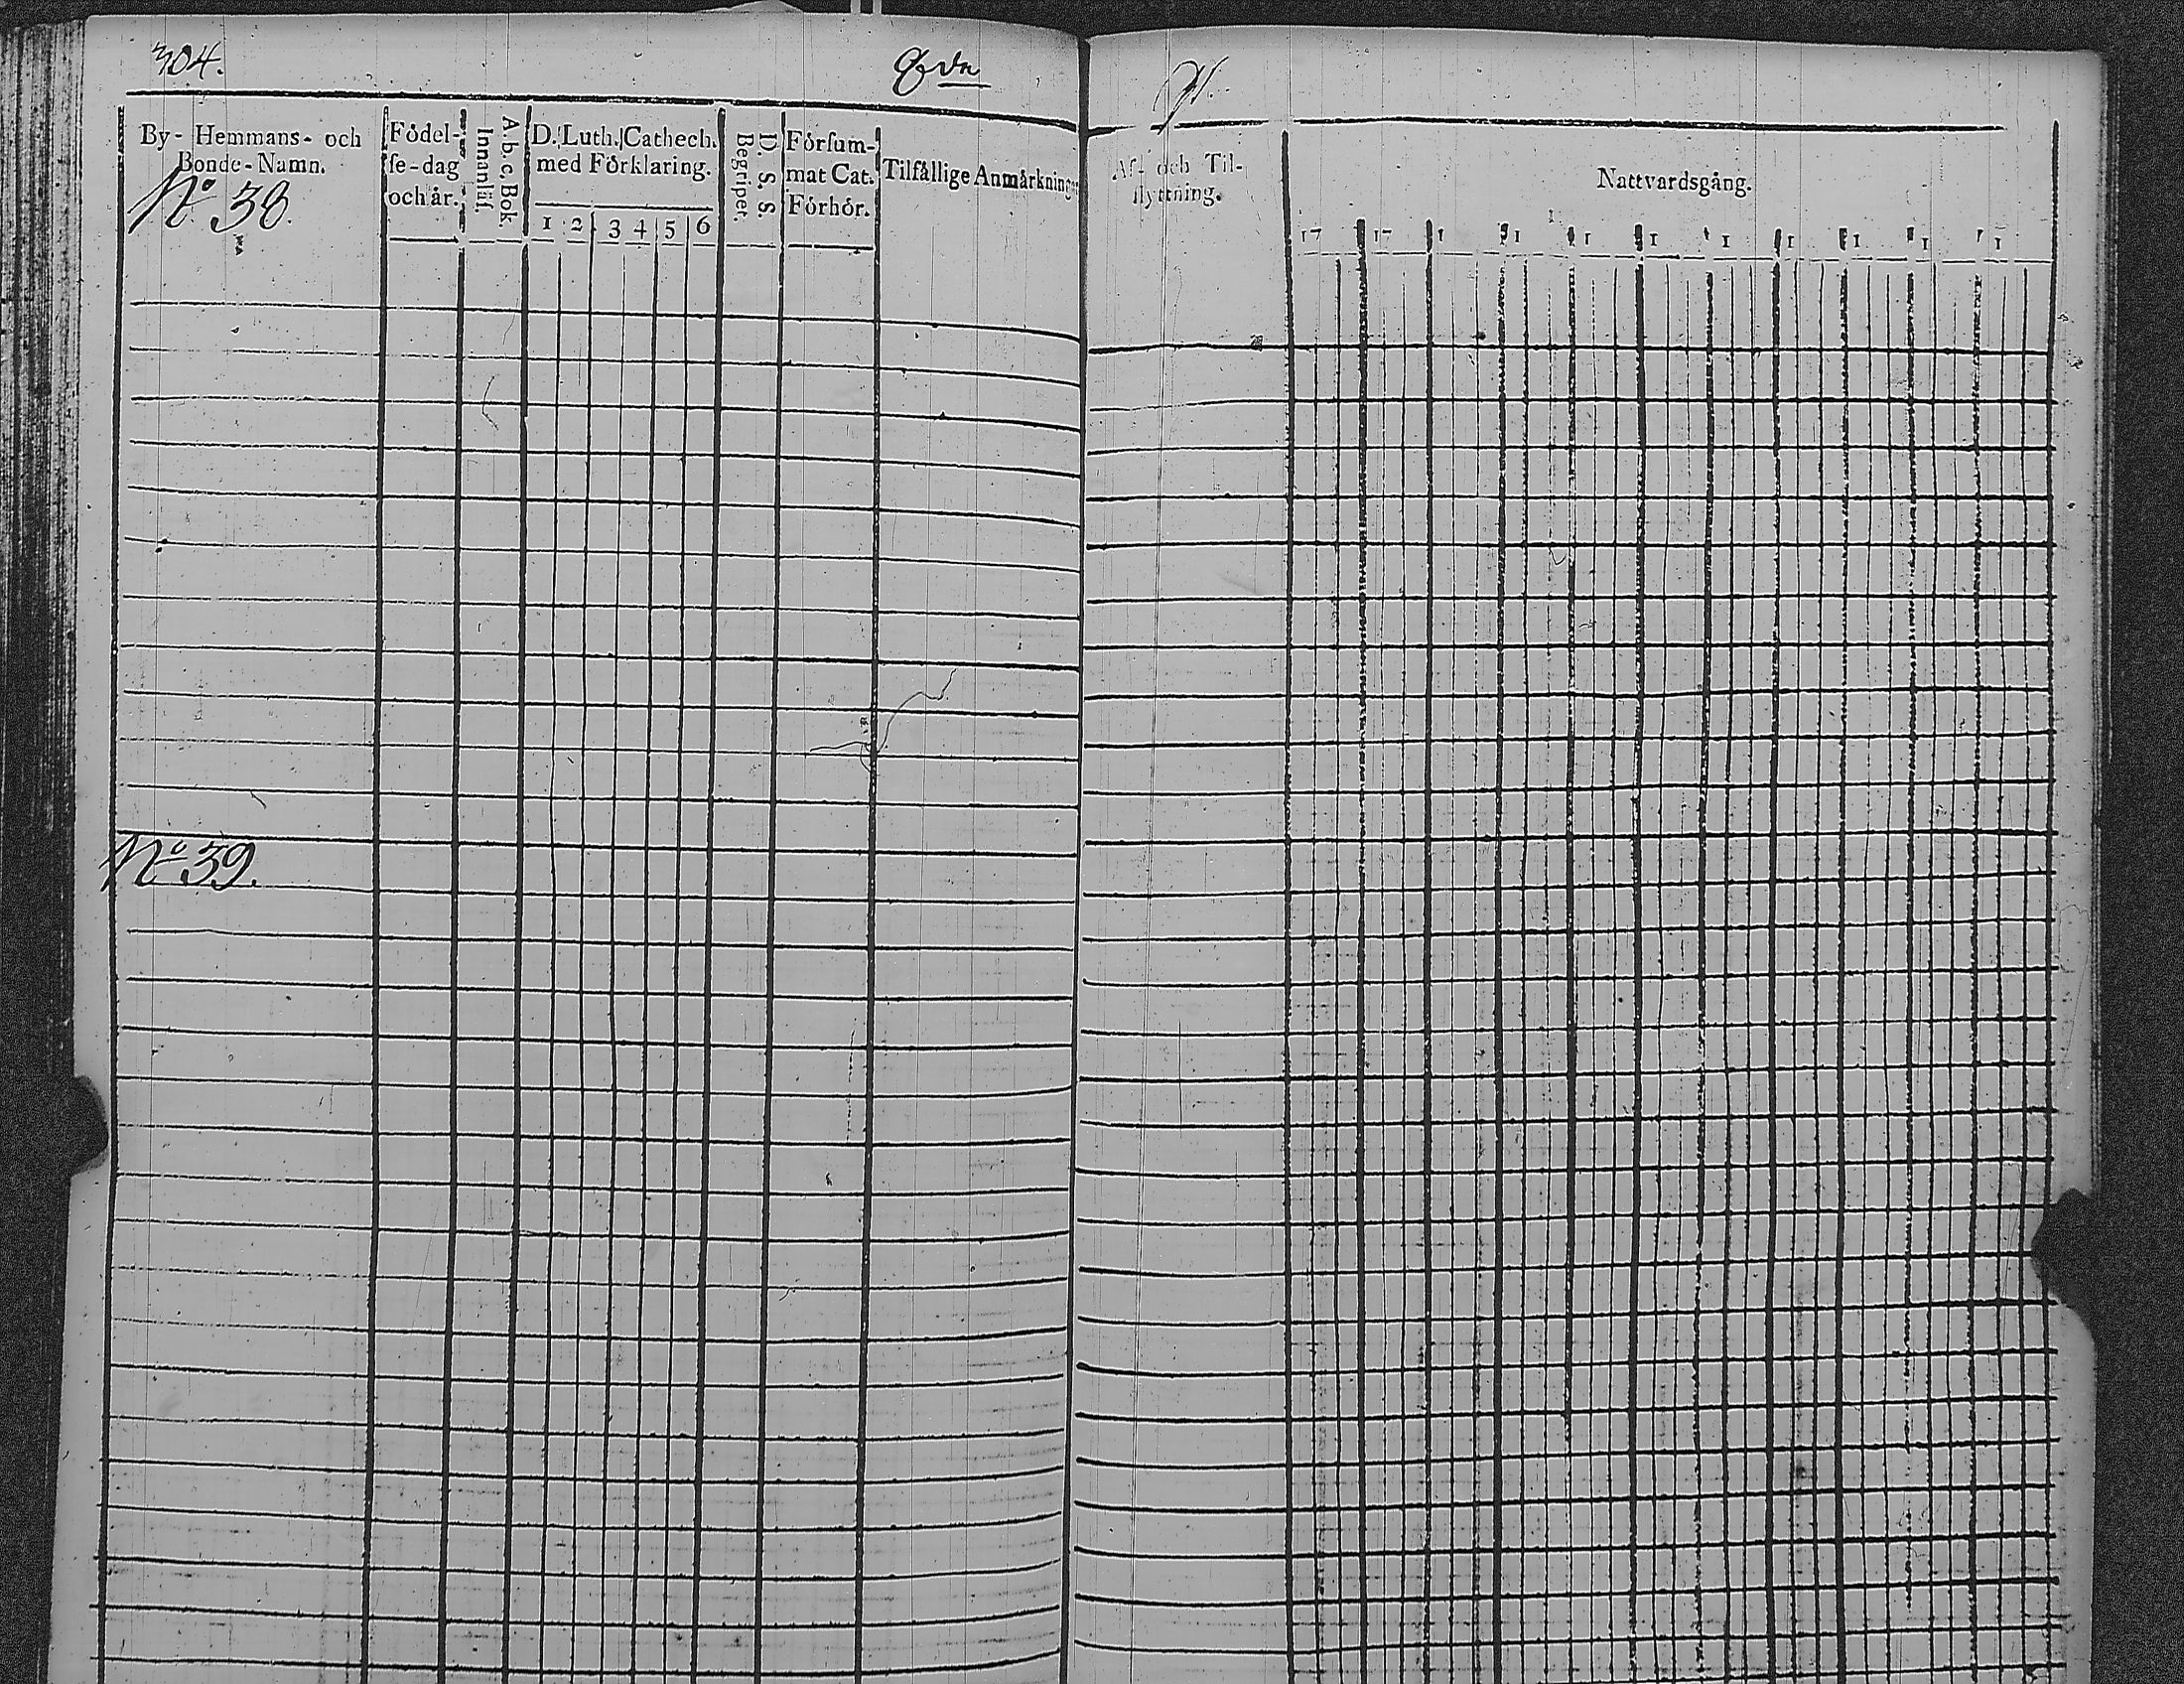 304.
By- Hemmans- och
Bonde-Namn.
Nº 38.
Födel-
se-dag
och år.
A.b.c. Bok.
Innanläs.
D. Luth. Cathech.
med Förklaring.
1 2 3 4 5 6
D. S. S.
Begriper.
Försum-
mat Cat.
Förhör.
Tilfällige Anmärkning
Af- och Til-
flyttning.
Nattvardsgång.
17 17 1 1 1 1 1 1 1 1 1
Nº 39.